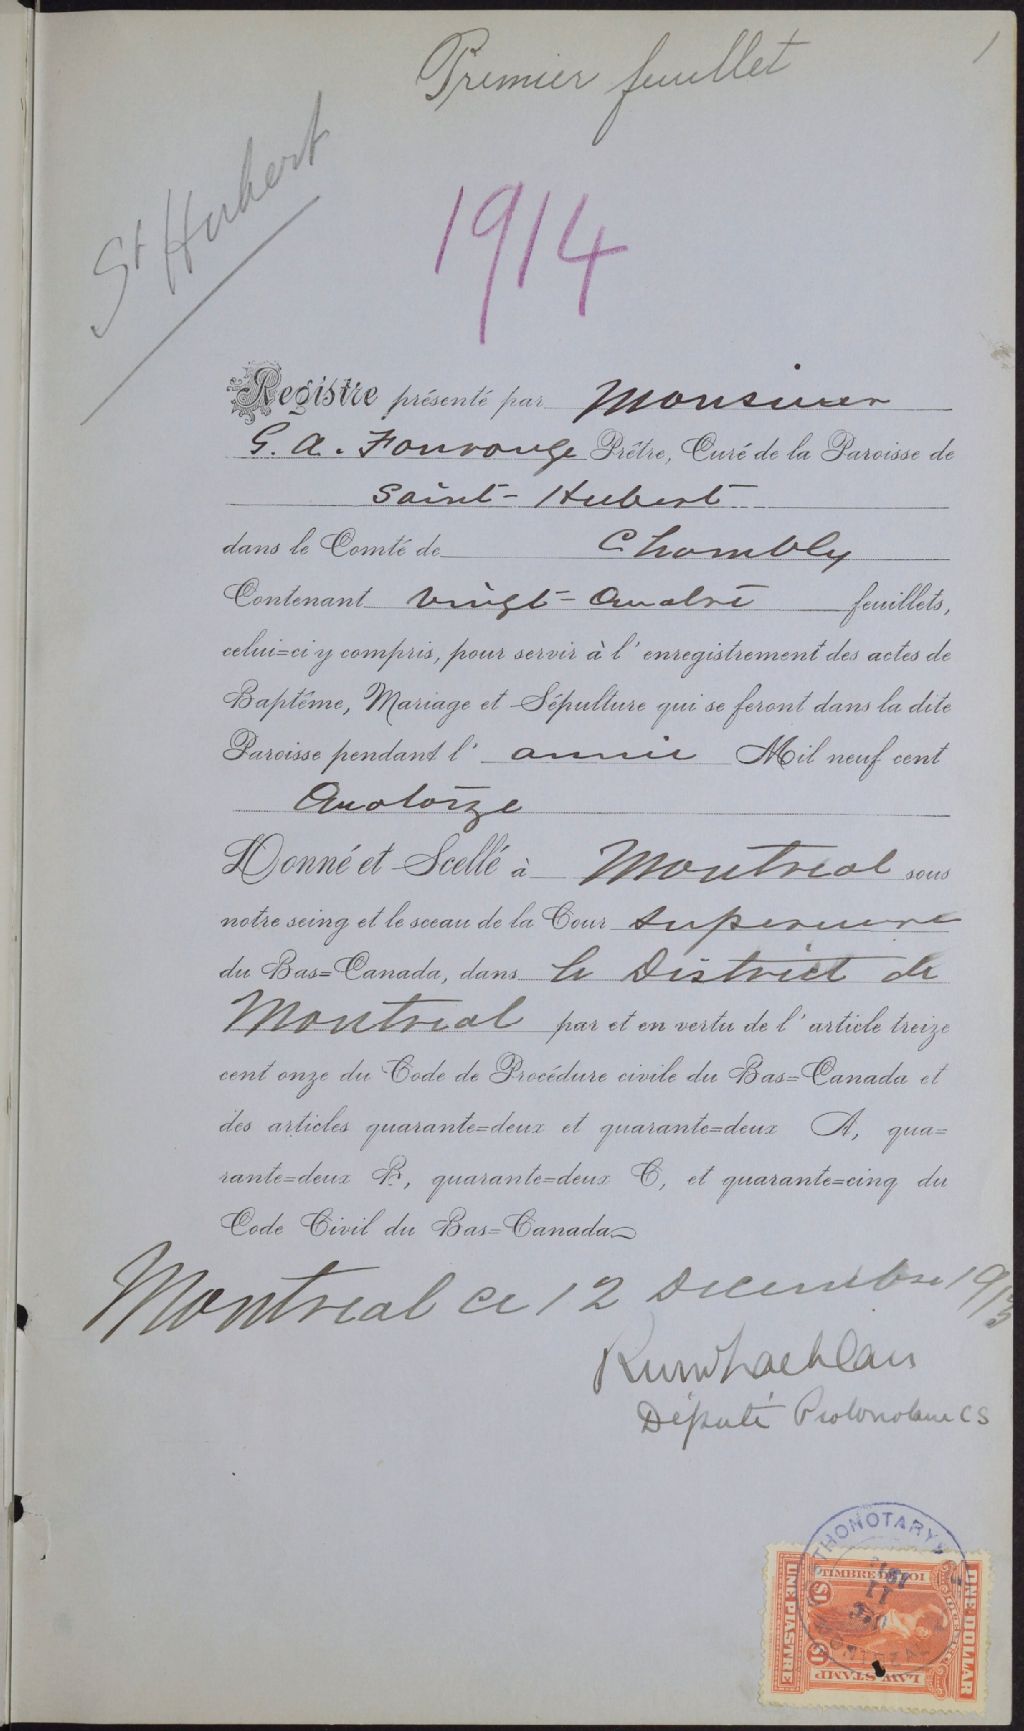 Premier feuillet
1
St Hubert
1914
Registre présenté par Monsieur
G. A. Fourouge Prêtre, Curé de la Paroisse de
Saint-Hubert
dans le Comté de Chambly
Contenant vingt-quatre feuillets,
celui=ci y compris, pour servir à l'enregistrement des actes de
Baptême, Mariage et Sépulture qui se feront dans la dite
Paroisse pendant l'année Mil neuf cent
Quatorze
Donné et Scellé à Montreal sous
notre seing et le sceau de la Cour Superieure
du Bas=Canada, dans le District de
Montreal par et en vertu de l'article treize
cent onze du Code de Procédure civile du Bas=Canada et
des articles quarante=deux et quarante=deux A, qua=
rante=deux B, quarante=deux C, et quarante=cinq du
Code Civil du Bas=Canada
Montreal ce 12 Decembre 1913
Député Protonotaire CS
THONOTARY
DEC
11
MONTREAL
TIMBRE DE LOI
$1
$1
LAW STAMP
UNE PIASTRE
ONE DOLLAR